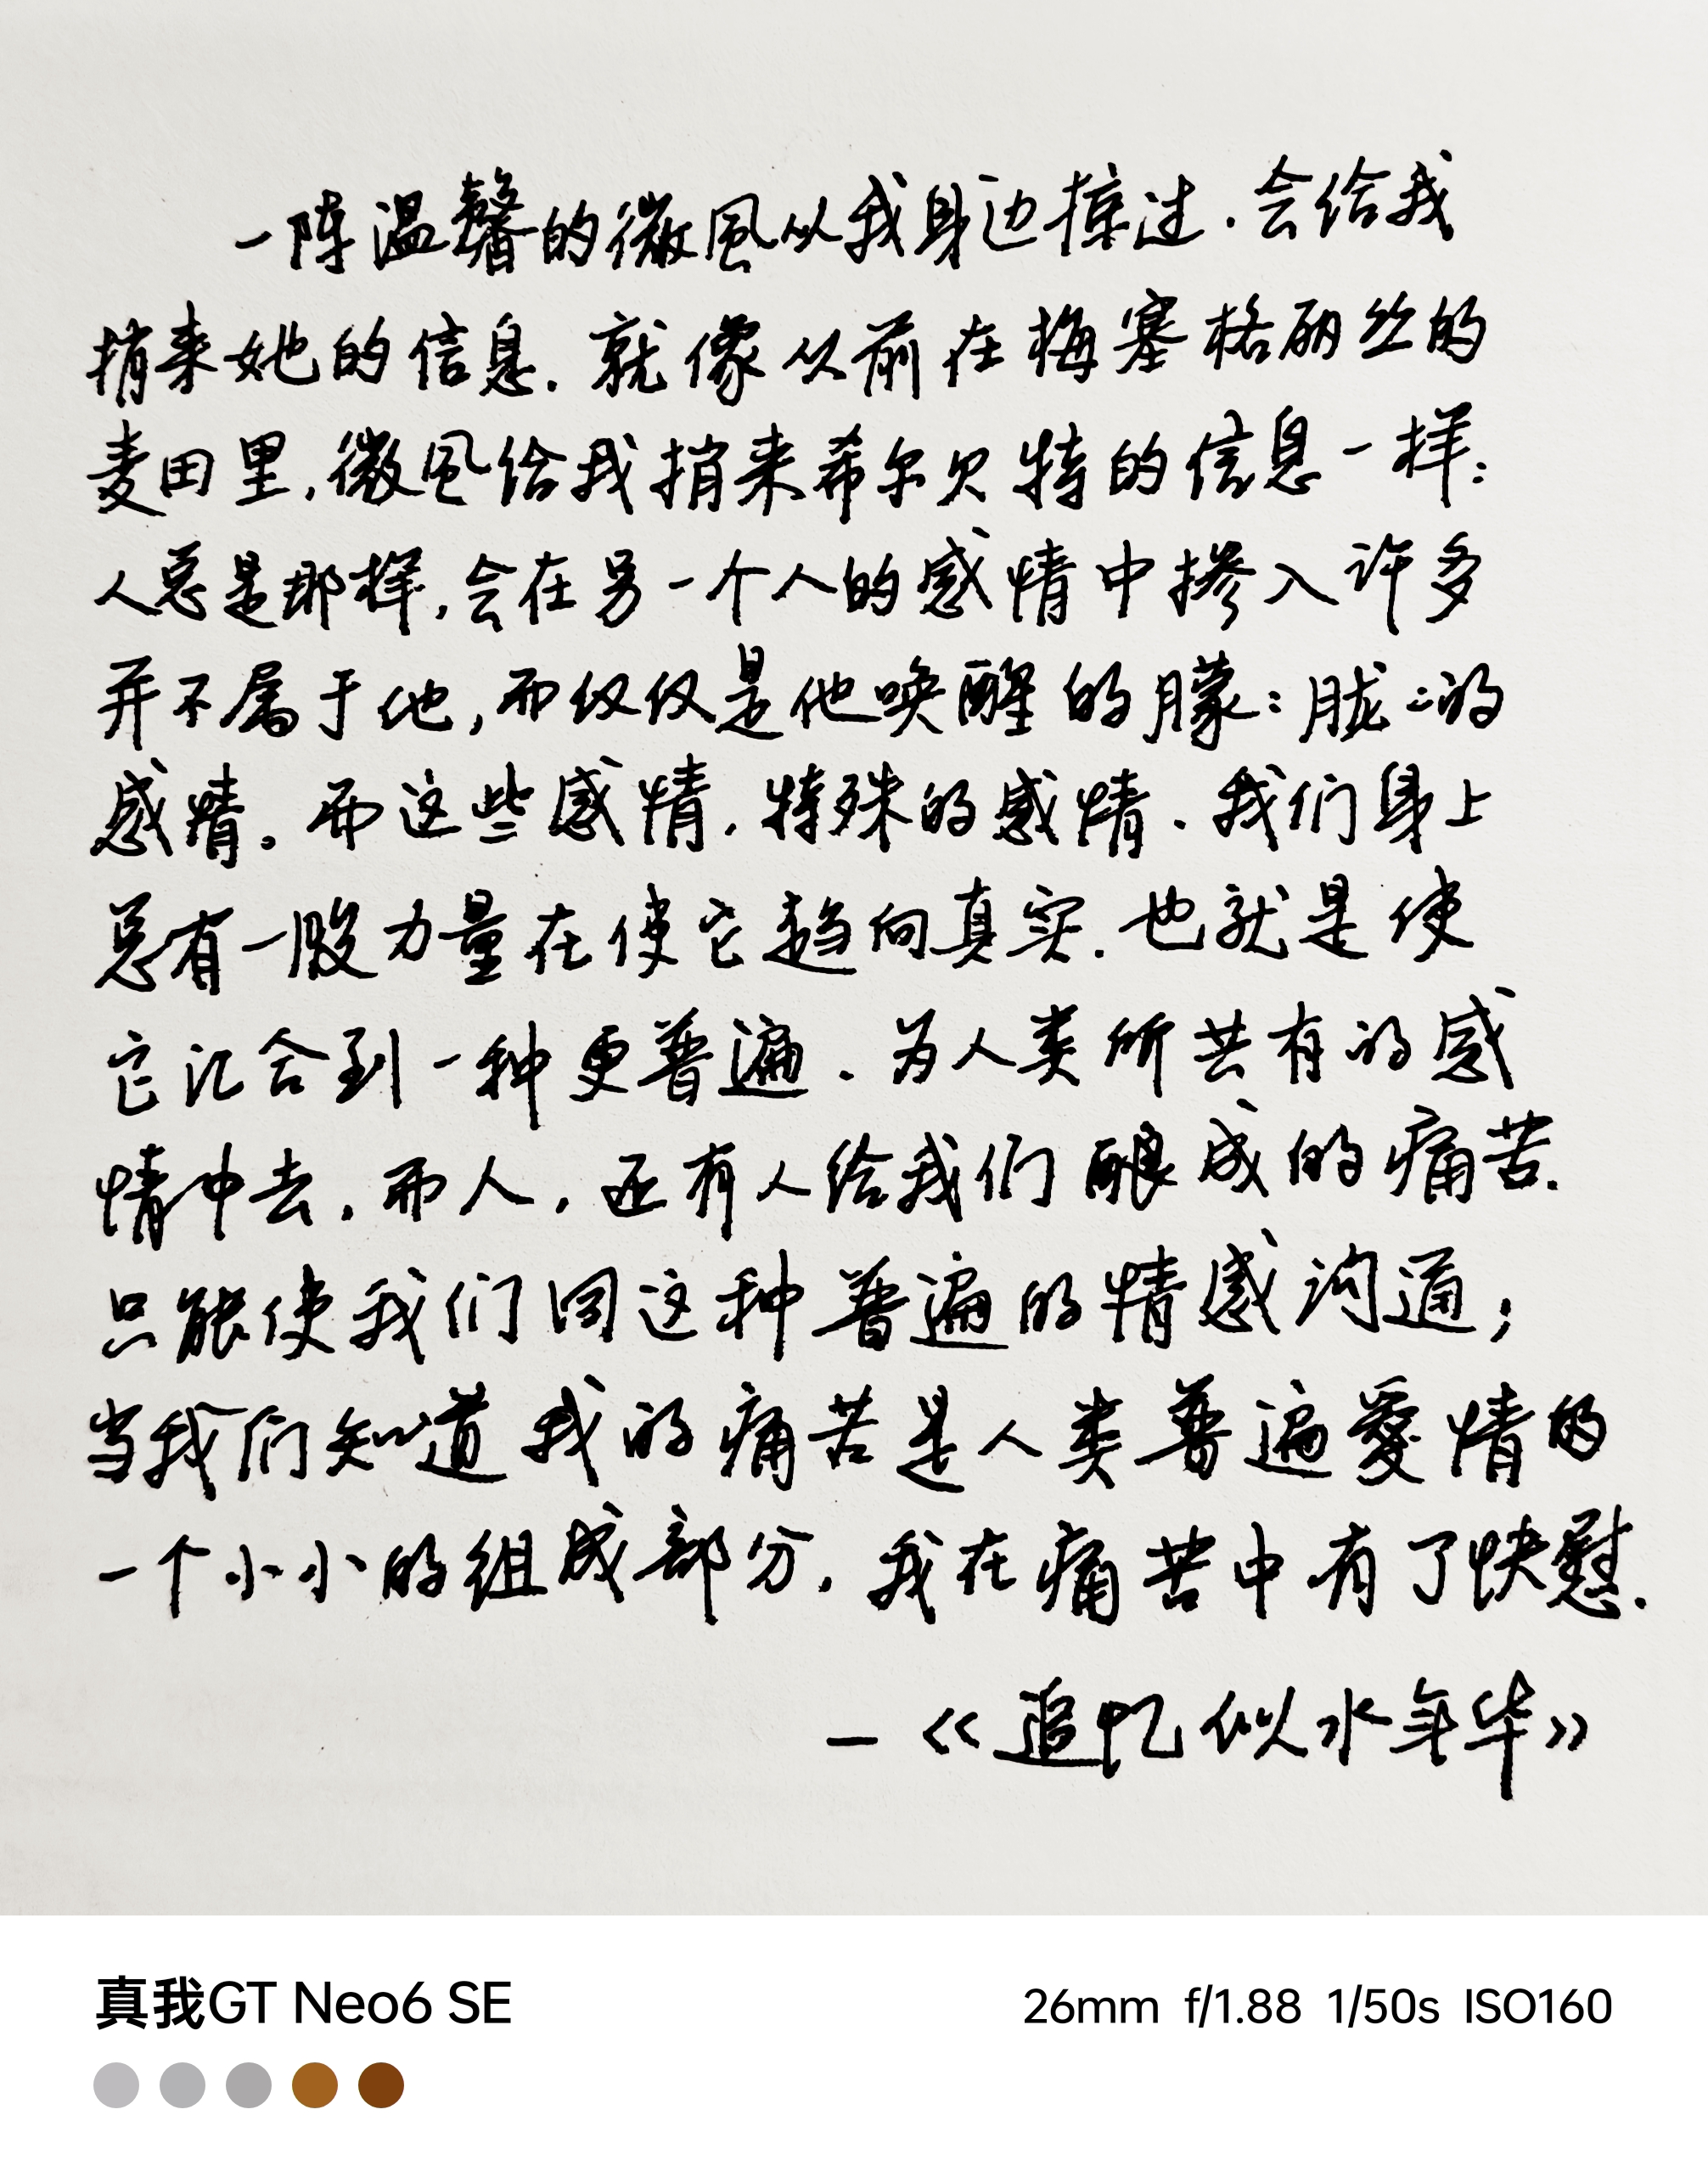 一阵温馨的微風从我身边掠过.会给我
捎来她的信息.就像从前在梅塞格丽丝的
麦田里,微风给我捎来希尔贝特的信息一样:
人总是那样,会在另一个人的感情中掺入许多
并不属于他,而仅仅是他唤醒的朦:胧:的
感情。而这些感情,特殊的感情.我们身上
总有一股力量在使它趋向真实.也就是使
它汇合到一种更普遍.为人类所共有的感
情中去.而人,还有人给我们酿成的痛苦.
只能使我们同这种普遍的情感沟通;
当我们知道我的痛苦是人类普遍愛情的
一个小小的组成部分.我在痛苦中有了快慰.
—《追忆似水年华》
真我GT Neo6 SE
26mm f/1.88 1/50s ISO160